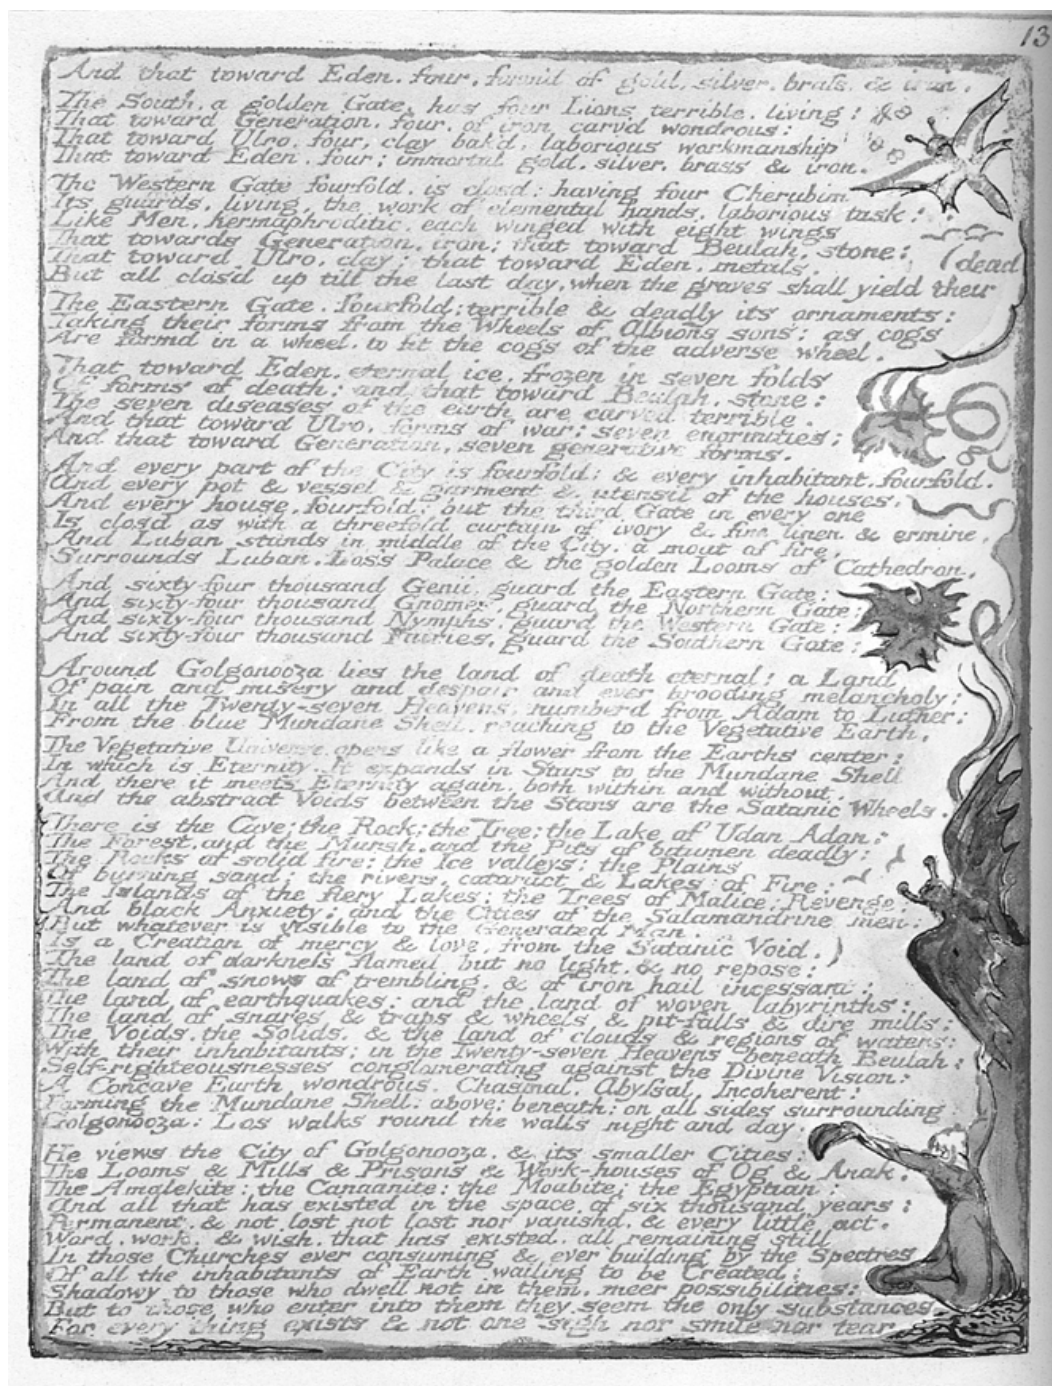 13
And that toward Eden, four, form'd of gold, silver, brass, & iron.
The South, a golden Gate, has four Lions terrible, living:
That toward Generation, four, of iron carv'd wondrous:
That toward Ulro, four, clay bak'd, laborious workmanship
That toward Eden, four; immortal gold, silver, brass & iron.
The Western Gate fourfold, is clos'd: having four Cherubim
Its guards, living, the work of elemental hands, laborious task:
Like Men, hermaphroditic, each winged with eight wings
That towards Generation, iron; that toward Beulah, stone:
That toward Ulro, clay: that toward Eden, metals.
But all clos'd up till the last day, when the graves shall yield their (dead
The Eastern Gate, fourfold: terrible & deadly its ornaments:
Taking their forms from the Wheels of Albions sons; as cogs
Are formd in a wheel, to fit the cogs of the adverse wheel.
That toward Eden, eternal ice, frozen in seven folds
Of forms of death: and that toward Beulah, stone:
The seven diseases of the earth are carved terrible.
And that toward Ulro, forms of war: seven enormities:
And that toward Generation, seven generative forms.
And every part of the City is fourfold; & every inhabitant, fourfold.
And every pot & vessel & garment & utensil of the houses,
And every house, fourfold; but the third Gate in every one
Is closd as with a threefold curtain of ivory & fine linen & ermine.
And Luban stands in middle of the City, a moat of fire,
Surrounds Luban, Los's Palace & the golden Looms of Cathedron.
And sixty-four thousand Genii, guard the Eastern Gate:
And sixty-four thousand Gnomes, guard the Northern Gate:
And sixty-four thousand Nymphs, guard the Western Gate:
And sixty-four thousand Fairies, guard the Southern Gate:
Around Golgonooza lies the land of death eternal: a Land
Of pain and misery and despair and ever brooding melancholy:
In all the Twenty-seven Heavens, numberd from Adam to Luther;
From the blue Mundane Shell, reaching to the Vegetative Earth.
The Vegetative Universe, opens like a flower from the Earths center:
In which is Eternity. It expands in Stars to the Mundane Shell
And there it meets Eternity again, both within and without,
And the abstract Voids between the Stars are the Satanic Wheels.
There is the Cave; the Rock; the Tree; the Lake of Udan Adan;
The Forest, and the Marsh, and the Pits of bitumen deadly:
The Rocks of solid fire: the Ice valleys: the Plains
Of burning sand: the rivers, cataract & Lakes of Fire:
The Islands of the fiery Lakes: the Trees of Malice: Revenge:
And black Anxiety; and the Cities of the Salamandrine men:
(But whatever is visible to the Generated Man,
Is a Creation of mercy & love, from the Satanic Void.)
The land of darkness flamed but no light, & no repose:
The land of snows of trembling, & of iron hail incessant:
The land of earthquakes: and the land of woven labyrinths:
The land of snares & traps & wheels & pit-falls & dire mills:
The Voids, the Solids, & the land of clouds & regions of waters:
With their inhabitants: in the Twenty-seven Heavens beneath Beulah:
Self-righteousnesses conglomerating against the Divine Vision:
A Concave Earth wondrous, Chasmal, Abyssal, Incoherent:
Forming the Mundane Shell: above; beneath: on all sides surrounding
Golgonooza: Los walks round the walls night and day.
He views the City of Golgonooza, & its smaller Cities:
The Looms & Mills & Prisons & Work-houses of Og & Anak:
The Amalekite: the Canaanite: the Moabite; the Egyptian:
And all that has existed in the space of six thousand years:
Permanent, & not lost not lost nor vanishd, & every little act,
Word, work, & wish, that has existed, all remaining still
In those Churches ever consuming & ever building by the Spectres
Of all the inhabitants of Earth wailing to be Created:
Shadowy to those who dwell not in them, meer possibilities:
But to those who enter into them they seem the only substances
For every thing exists & not one sigh nor smile nor tear